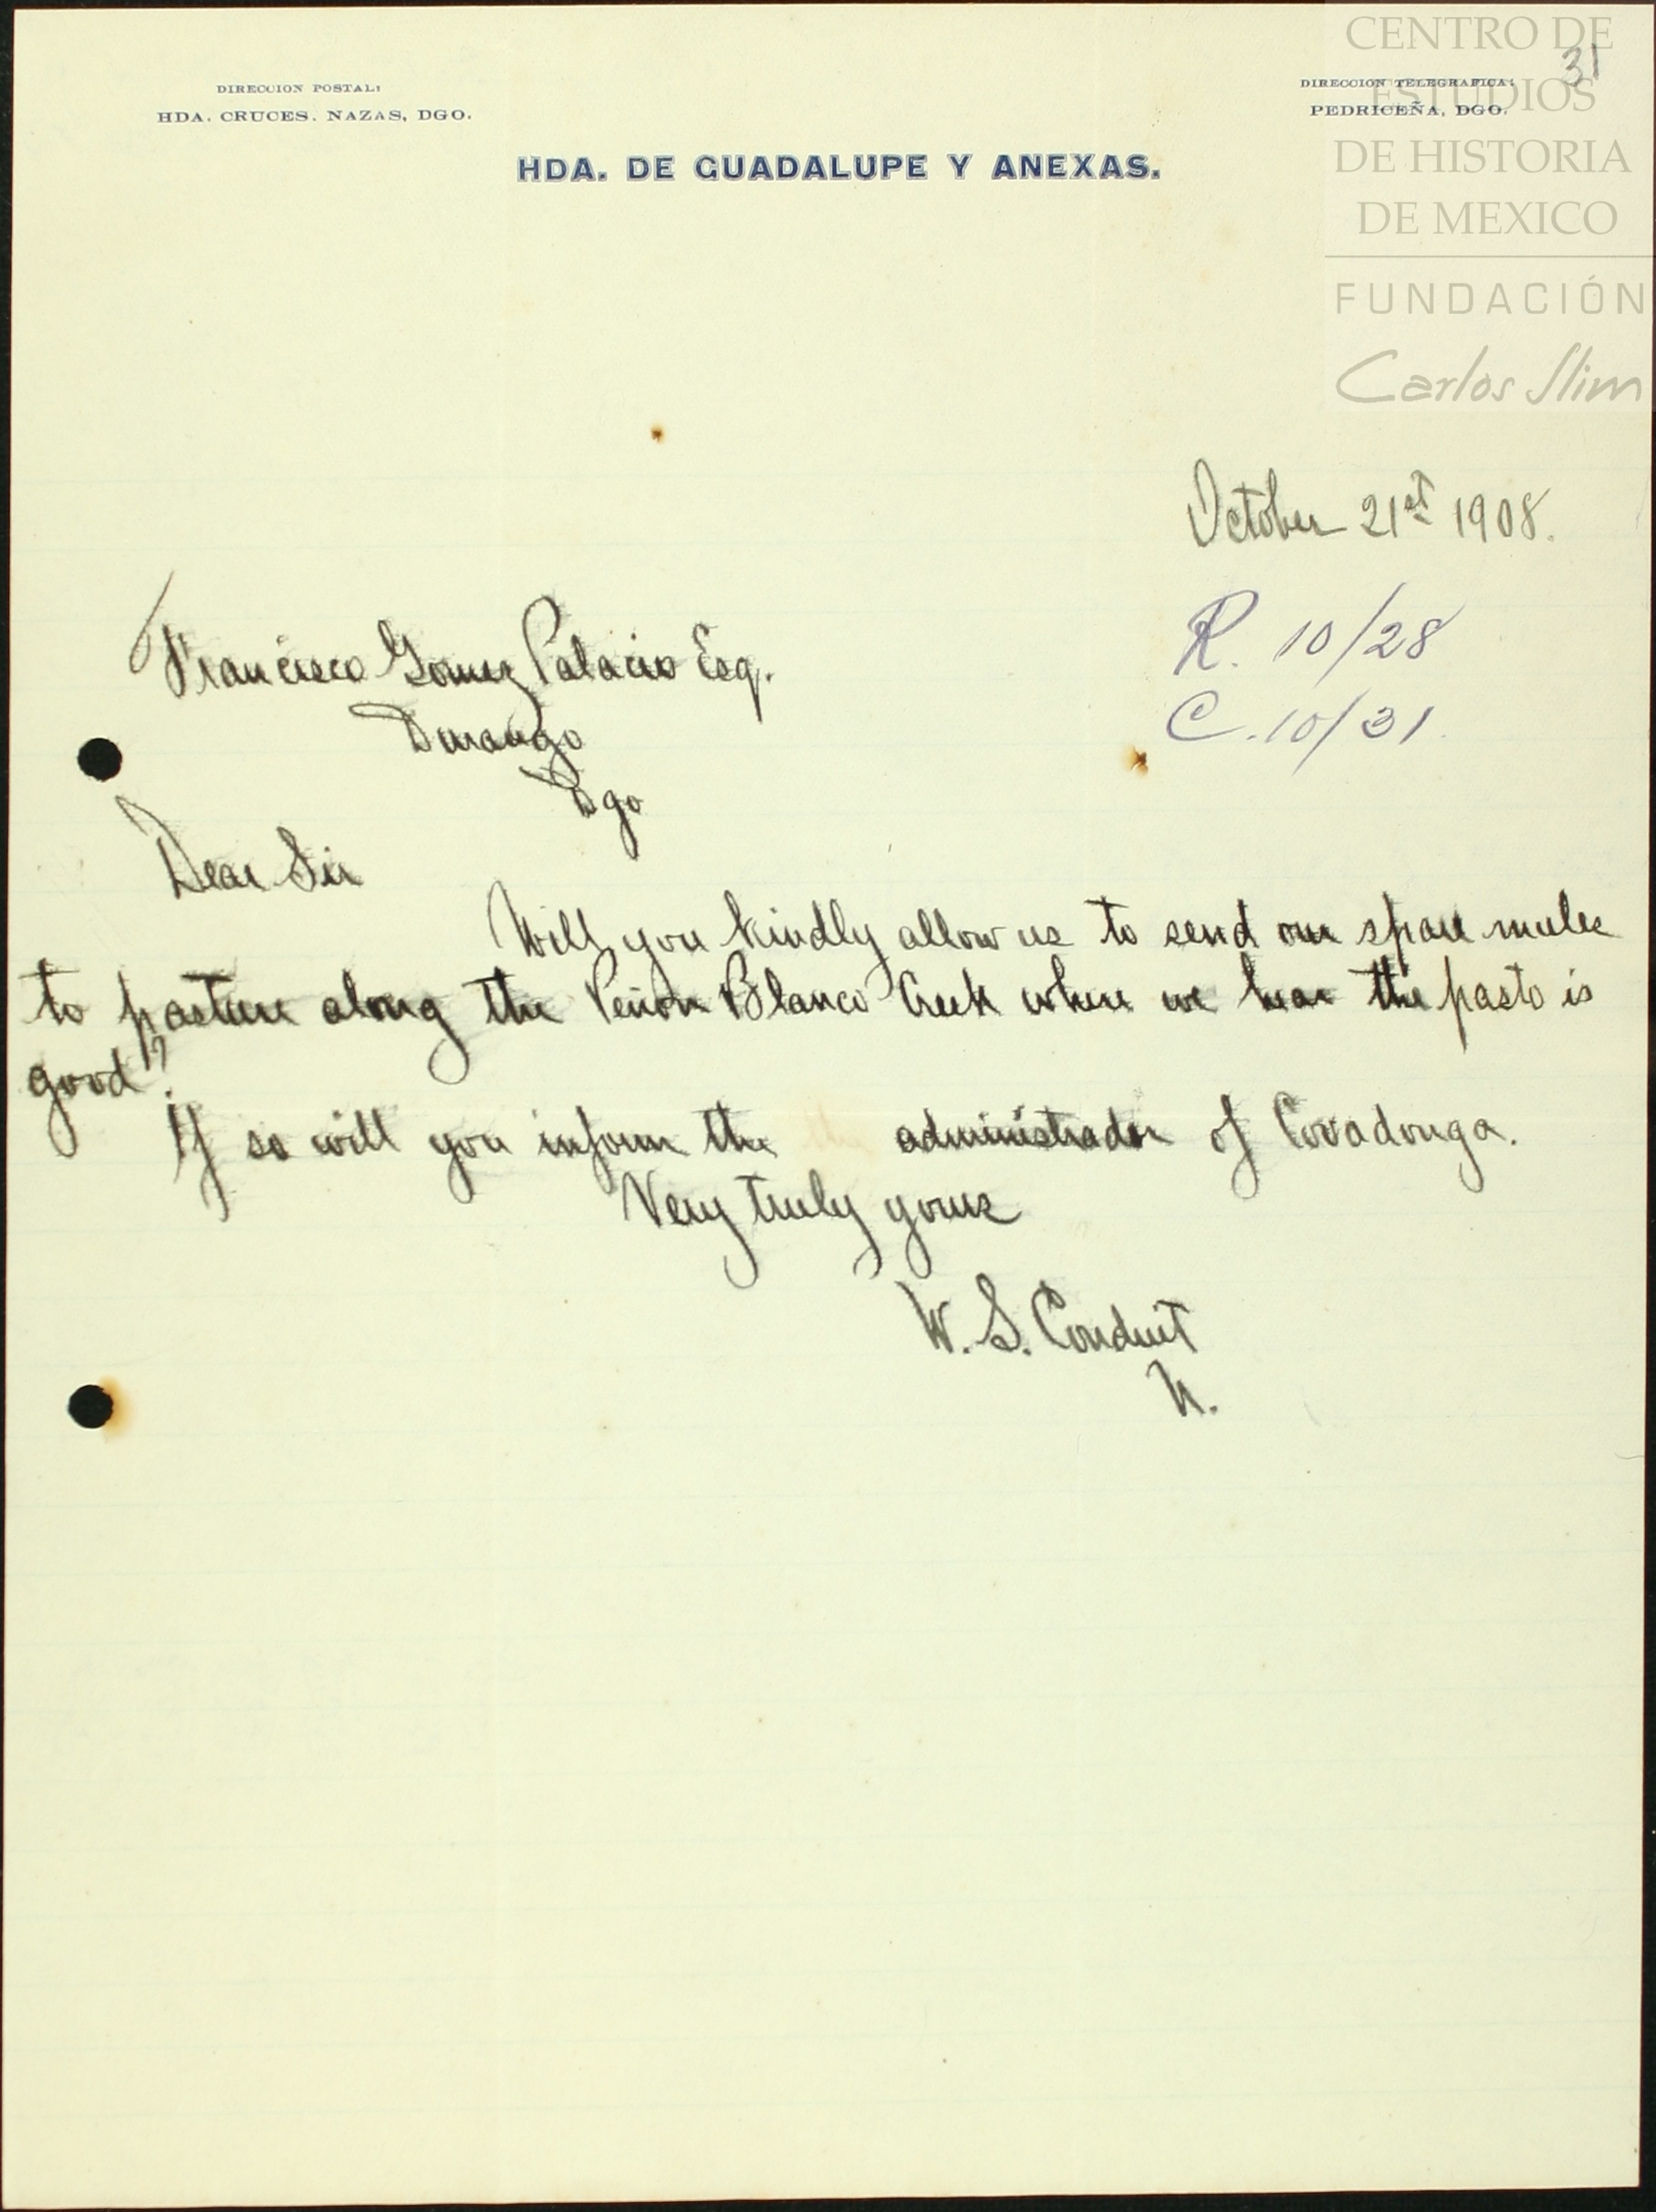 CENTRO DE
ESTUDIOS
DE HISTORIA
DE MEXICO
FUNDACIÓN
Carlos Slim
31
DIRECCION POSTAL:
HDA. CRUCES. NAZAS, DGO.
DIRECCION TELEGRAFICA:
PEDRICEÑA, DGO.
HDA. DE GUADALUPE Y ANEXAS.
October 21st 1908.
R. 10/28
C. 10/31.
Francisco Gomez Palacio Esq.
Durango
Dgo
Dear Sir
Will you kindly allow us to send our spare mules
to pasture along the Peñon Blanco Creek where we hear the pasto is
good?
If so will you inform the administrador of Covadonga.
Very truly yours
W. S. Conduit